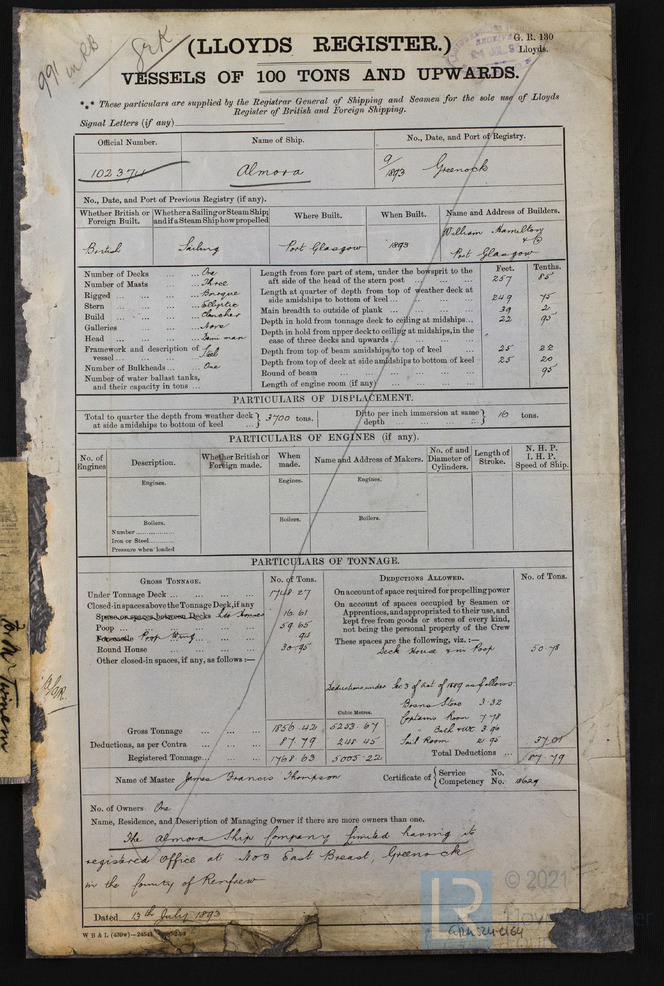 991 in RB
(LLOYDS REGISTER.)
G. R. 130
Lloyds.
VESSELS OF 100 TONS AND UPWARDS.
*** These particulars are supplied by the Registrar General of Shipping and Seamen for the sole use of Lloyds
Register of British and Foreign Shipping.
Signal Letters (if any)
Official Number. Name of Ship. No., Date, and Port of Registry.
102374 Almora 9/1893 Greenock
No., Date, and Port of Previous Registry (if any).
Whether British or Foreign Built. Whether a Sailing or Steam Ship; and if a Steam Ship how propelled Where Built. When Built. Name and Address of Builders.
British Sailing Port Glasgow 1893 William Hamilton & Co Port Glasgow
Number of Decks ... ... One
Number of Masts ... ... Three
Rigged ... ... ... Barque
Stern ... ... ... Elliptic
Build ... ... ... Clencher
Galleries ... ... None
Head ... ... ... Demi man
Framework and description of vessel ... ... ... Steel
Number of Bulkheads ... ... One
Number of water ballast tanks, and their capacity in tons ...
Feet. Tenths.
Length from fore part of stem, under the bowsprit to the aft side of the head of the stern post ... 257 85
Length at quarter of depth from top of weather deck at side amidships to bottom of keel ... 249 75
Main breadth to outside of plank ... 39 2
Depth in hold from tonnage deck to ceiling at midships... 22 95
Depth in hold from upper deck to ceiling at midships, in the case of three decks and upwards ...
Depth from top of beam amidships to top of keel 25 22
Depth from top of deck at side amidships to bottom of keel 25 20
Round of beam 95
Length of engine room (if any) ...
PARTICULARS OF DISPLACEMENT.
Total to quarter the depth from weather deck at side amidships to bottom of keel ... } 3700 tons. Ditto per inch immersion at same depth ... } 16 tons.
PARTICULARS OF ENGINES (if any).
No. of Engines Description. Whether British or Foreign made. When made. Name and Address of Makers. No. of and Diameter of Cylinders. Length of Stroke. N. H. P. I. H. P. Speed of Ship.
Engines. Engines. Engines.
Boilers. Boilers. Boilers.
Number
Iron or Steel
Pressure when loaded
PARTICULARS OF TONNAGE.
GROSS TONNAGE. No. of Tons. DEDUCTIONS ALLOWED. No. of Tons.
Under Tonnage Deck ... ... ... 1748.27
Closed-in spaces above the Tonnage Deck, if any
Space or spaces between Decks 16.61
Poop ... ... ... 59.65
Forecastle Poop Wing ... .94
Round House ... ... 30.95
Other closed-in spaces, if any, as follows:—
On account of space required for propelling power
On account of spaces occupied by Seamen or Apprentices, and appropriated to their use, and kept free from goods or stores of every kind, not being the personal property of the Crew
These spaces are the following, viz.:—
Deck House & in Poop 50.78
Deductions under Sec 3 of Act of 1889 as follows
Bosns Store 3.32
Captains Room 7.78
3.96
Sail Room 21.95 37.01
Cubic Metres.
Gross Tonnage ... ... 1856.42 5253.67
Deductions, as per Contra ... ... 87.79 248.45
Registered Tonnage... ... 1768.63 5005.22
Total Deductions ... 87.79
Name of Master James Francis Thompson Certificate of { Service No. Competency No. 18629
No. of Owners One
Name, Residence, and Description of Managing Owner if there are more owners than one.
The Almora Ship Company Limited having its
registered Office at No 3 East Breast, Greenock
in the County of Renfrew
Dated 13th July 1893
LR © 2021